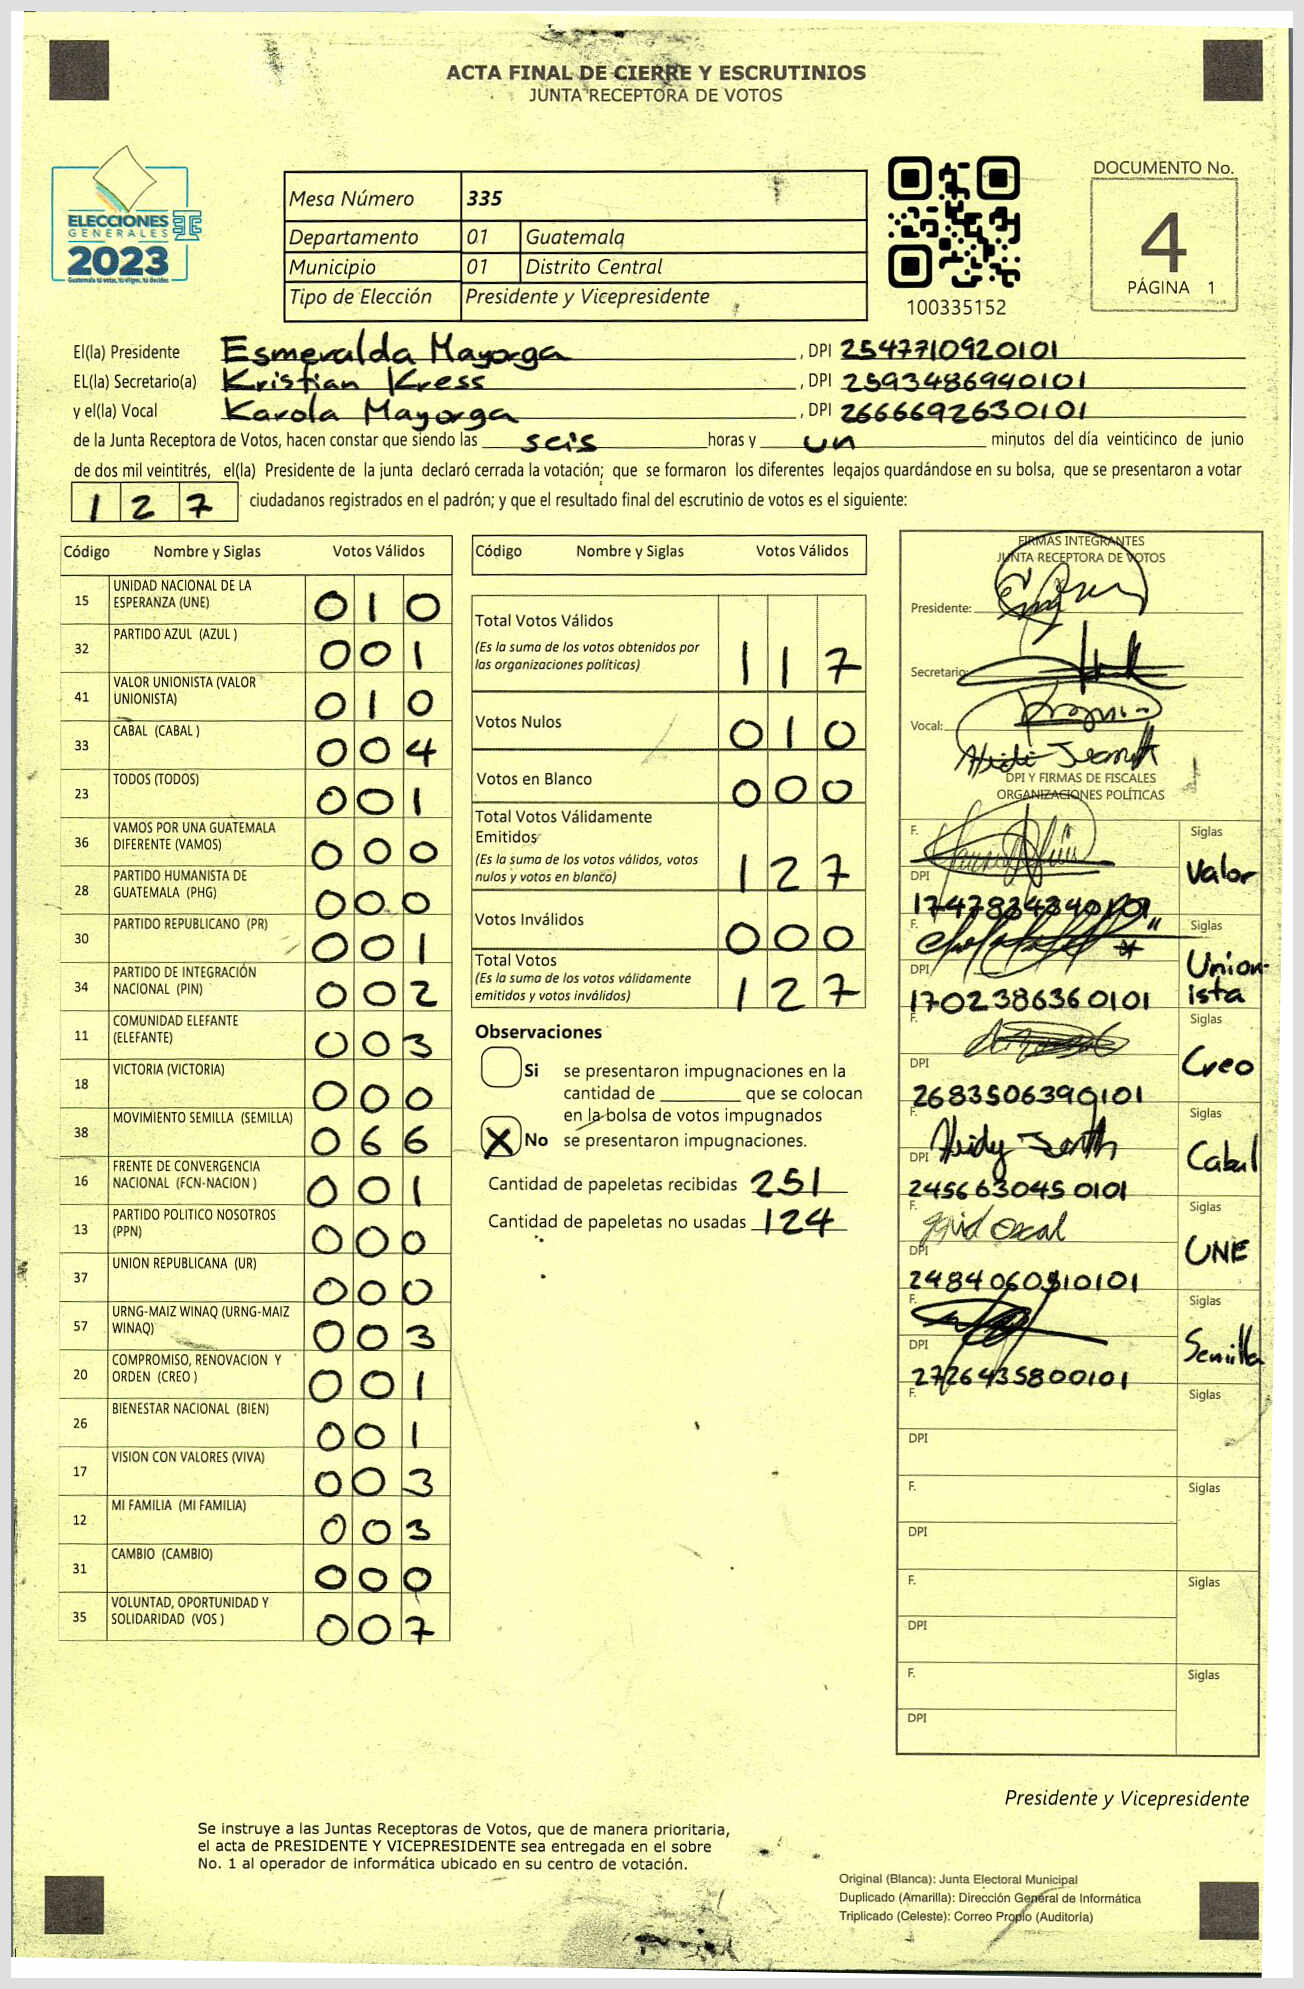 ACTA FINAL DE CIERRE Y ESCRUTINIOS
JUNTA RECEPTORA DE VOTOS
ELECCIONES
GENERALES
2023
Guatemala tú votas, tú eliges, tú decides
Mesa Número 335
Departamento 01 Guatemala
Municipio 01 Distrito Central
Tipo de Elección Presidente y Vicepresidente
100335152
DOCUMENTO No.
4
PÁGINA 1
El(la) Presidente Esmeralda Mayorga , DPI 2547710920101
EL(la) Secretario(a) Kristian Kress , DPI 2593486940101
y el(la) Vocal Karola Mayorga , DPI 2666692630101
de la Junta Receptora de Votos, hacen constar que siendo las seis horas y un minutos del día veinticinco de junio
de dos mil veintitrés, el(la) Presidente de la junta declaró cerrada la votación; que se formaron los diferentes legajos guardándose en su bolsa, que se presentaron a votar
127 ciudadanos registrados en el padrón; y que el resultado final del escrutinio de votos es el siguiente:
Código Nombre y Siglas Votos Válidos
15 UNIDAD NACIONAL DE LA ESPERANZA (UNE) 010
32 PARTIDO AZUL (AZUL ) 001
41 VALOR UNIONISTA (VALOR UNIONISTA) 010
33 CABAL (CABAL ) 004
23 TODOS (TODOS) 001
36 VAMOS POR UNA GUATEMALA DIFERENTE (VAMOS) 000
28 PARTIDO HUMANISTA DE GUATEMALA (PHG) 000
30 PARTIDO REPUBLICANO (PR) 001
34 PARTIDO DE INTEGRACIÓN NACIONAL (PIN) 002
11 COMUNIDAD ELEFANTE (ELEFANTE) 003
18 VICTORIA (VICTORIA) 000
38 MOVIMIENTO SEMILLA (SEMILLA) 066
16 FRENTE DE CONVERGENCIA NACIONAL (FCN-NACION ) 001
13 PARTIDO POLITICO NOSOTROS (PPN) 000
37 UNION REPUBLICANA (UR) 000
57 URNG-MAIZ WINAQ (URNG-MAIZ WINAQ) 003
20 COMPROMISO, RENOVACION Y ORDEN (CREO ) 001
26 BIENESTAR NACIONAL (BIEN) 001
17 VISION CON VALORES (VIVA) 003
12 MI FAMILIA (MI FAMILIA) 003
31 CAMBIO (CAMBIO) 000
35 VOLUNTAD, OPORTUNIDAD Y SOLIDARIDAD (VOS ) 007
Código Nombre y Siglas Votos Válidos
Total Votos Válidos
(Es la suma de los votos obtenidos por
las organizaciones políticas) 117
Votos Nulos 010
Votos en Blanco 000
Total Votos Válidamente
Emitidos
(Es la suma de los votos válidos, votos
nulos y votos en blanco) 127
Votos Inválidos 000
Total Votos
(Es la suma de los votos válidamente
emitidos y votos inválidos) 127
Observaciones
Si se presentaron impugnaciones en la
cantidad de ________ que se colocan
en la bolsa de votos impugnados
X No se presentaron impugnaciones.
Cantidad de papeletas recibidas 251
Cantidad de papeletas no usadas 124
FIRMAS INTEGRANTES
JUNTA RECEPTORA DE VOTOS
Presidente:
Secretario:
Vocal:
DPI Y FIRMAS DE FISCALES
ORGANIZACIONES POLÍTICAS
F. Siglas Valor
DPI
F. Siglas Unionista
DPI 1702386360101
F. Siglas Creo
DPI 2683506390101
F. Siglas Cabal
DPI 2456630450101
F. Siglas UNE
DPI 2484060510101
F. Siglas Semilla
DPI 2726435800101
F. Siglas
DPI
F. Siglas
DPI
F. Siglas
DPI
F. Siglas
DPI
Presidente y Vicepresidente
Se instruye a las Juntas Receptoras de Votos, que de manera prioritaria,
el acta de PRESIDENTE Y VICEPRESIDENTE sea entregada en el sobre
No. 1 al operador de informática ubicado en su centro de votación.
Original (Blanca): Junta Electoral Municipal
Duplicado (Amarilla): Dirección General de Informática
Triplicado (Celeste): Correo Propio (Auditoría)